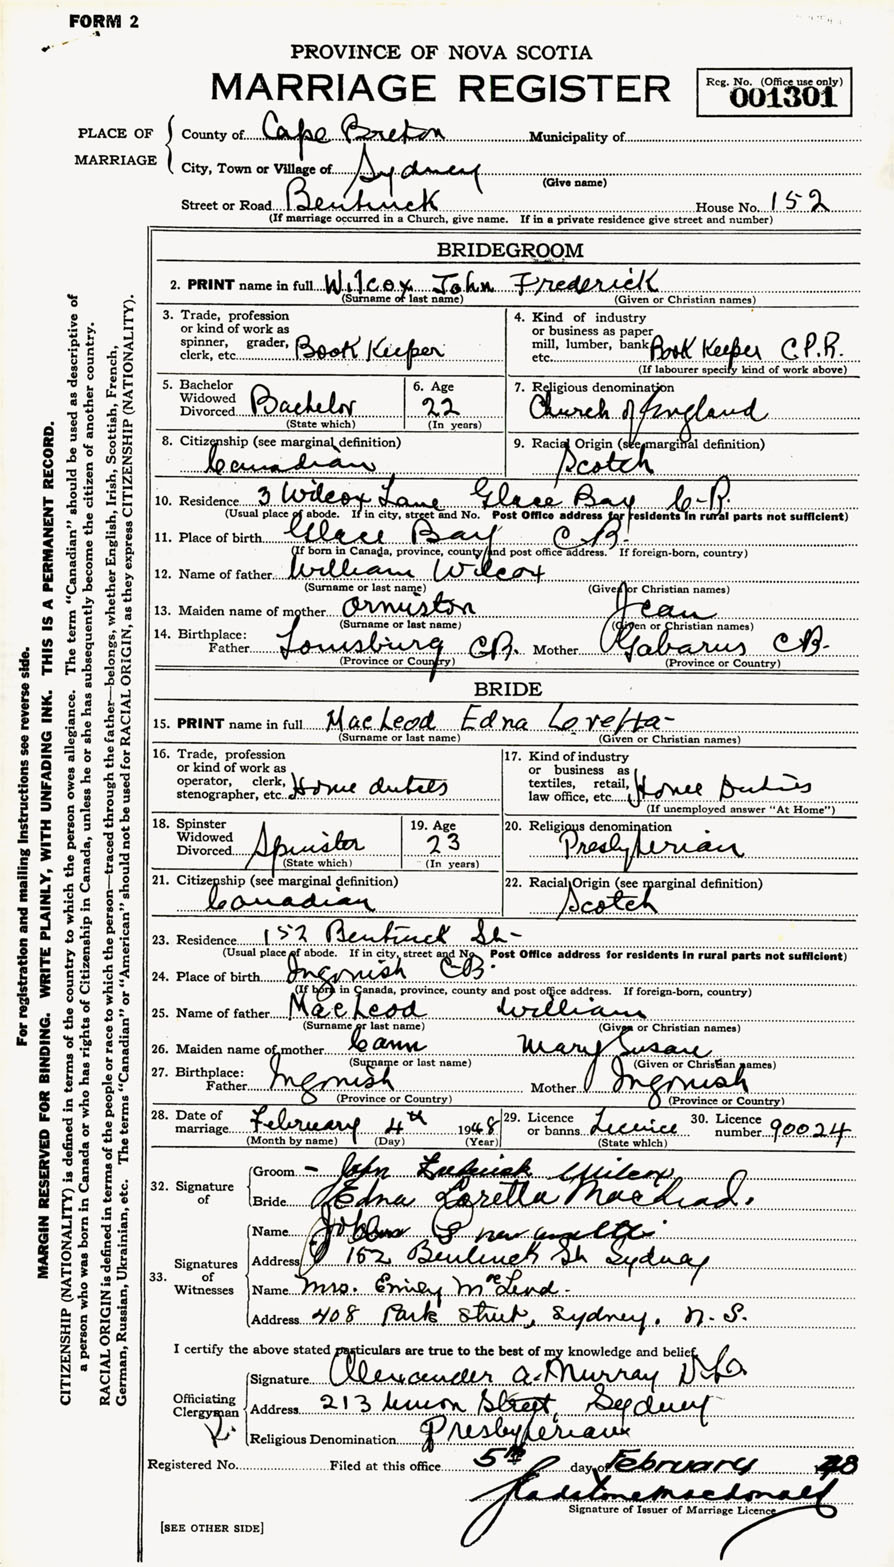 FORM 2
PROVINCE OF NOVA SCOTIA
MARRIAGE REGISTER
Reg. No. (Office use only)
001301
PLACE OF MARRIAGE
County of Cape Breton Municipality of
City, Town or Village of Sydney
(Give name)
Street or Road Bentinck House No. 152
(If marriage occurred in a Church, give name. If in a private residence give street and number)
BRIDEGROOM
2. PRINT name in full Wilcox John Frederick
(Surname or last name) (Given or Christian names)
3. Trade, profession or kind of work as spinner, grader, clerk, etc. Book Keeper
4. Kind of industry or business as paper mill, lumber, bank etc. Book Keeper C.P.R.
(If labourer specify kind of work above)
5. Bachelor Widowed Divorced Bachelor
(State which)
6. Age 22
(In years)
7. Religious denomination
Church of England
8. Citizenship (see marginal definition)
Canadian
9. Racial Origin (see marginal definition)
Scotch
10. Residence 3 Wilcox Lane Glace Bay C-B.
(Usual place of abode. If in city, street and No. Post Office address for residents in rural parts not sufficient)
11. Place of birth Glace Bay C.B.
(If born in Canada, province, county and post office address. If foreign-born, country)
12. Name of father William Wilcox
(Surname or last name) (Given or Christian names)
13. Maiden name of mother Ormiston Jean
(Surname or last name) (Given or Christian names)
14. Birthplace:
Father Louisburg CB. Mother Gabarus CB.
(Province or Country) (Province or Country)
BRIDE
15. PRINT name in full MacLeod Edna Loretta
(Surname or last name) (Given or Christian names)
16. Trade, profession or kind of work as operator, clerk, stenographer, etc. Home duties
17. Kind of industry or business as textiles, retail, law office, etc. Home Duties
(If unemployed answer "At Home")
18. Spinster Widowed Divorced Spinster
(State which)
19. Age 23
(In years)
20. Religious denomination
Presbyterian
21. Citizenship (see marginal definition)
Canadian
22. Racial Origin (see marginal definition)
Scotch
23. Residence 152 Bentinck St-
(Usual place of abode. If in city, street and No. Post Office address for residents in rural parts not sufficient)
24. Place of birth Ingonish CB.
(If born in Canada, province, county and post office address. If foreign-born, country)
25. Name of father MacLeod William
(Surname or last name) (Given or Christian names)
26. Maiden name of mother Cann Mary Susan
(Surname or last name) (Given or Christian names)
27. Birthplace:
Father Ingonish Mother Ingonish
(Province or Country) (Province or Country)
28. Date of marriage February 4th 1948
(Month by name) (Day) (Year)
29. Licence or banns Licence
(State which)
30. Licence number 90024
32. Signature of
Groom - John Frederick Wilcox
Bride Edna Loretta MacLeod.
33. Signatures of Witnesses
Name
Address 152 Bentinck St Sydney
Name Mrs. Emily McLeod.
Address 408 Park Street, Sydney, N.S.
I certify the above stated particulars are true to the best of my knowledge and belief.
Officiating Clergyman
Signature Alexander A. Murray
Address 213 Union Street, Sydney
Religious Denomination Presbyterian
Registered No. Filed at this office 5th day of February 48
Gladstone Macdonald
Signature of Issuer of Marriage Licence
[SEE OTHER SIDE]
For registration and mailing instructions see reverse side.
MARGIN RESERVED FOR BINDING. WRITE PLAINLY, WITH UNFADING INK. THIS IS A PERMANENT RECORD.
CITIZENSHIP (NATIONALITY) is defined in terms of the country to which the person owes allegiance. The term "Canadian" should be used as descriptive of
a person who was born in Canada or who has rights of Citizenship in Canada, unless he or she has subsequently become the citizen of another country.
RACIAL ORIGIN is defined in terms of the people or race to which the person—traced through the father—belongs, whether English, Irish, Scottish, French,
German, Russian, Ukrainian, etc. The terms "Canadian" or "American" should not be used for RACIAL ORIGIN, as they express CITIZENSHIP (NATIONALITY).